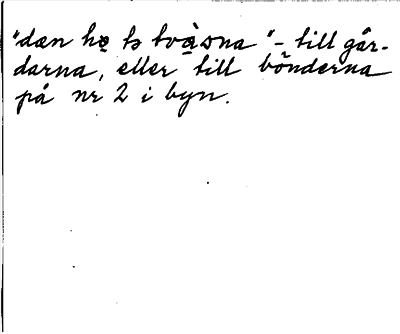 "dæn họ tə tvạ̀əna" - till går-
darna, eller till bönderna
på nr 2 i byn.